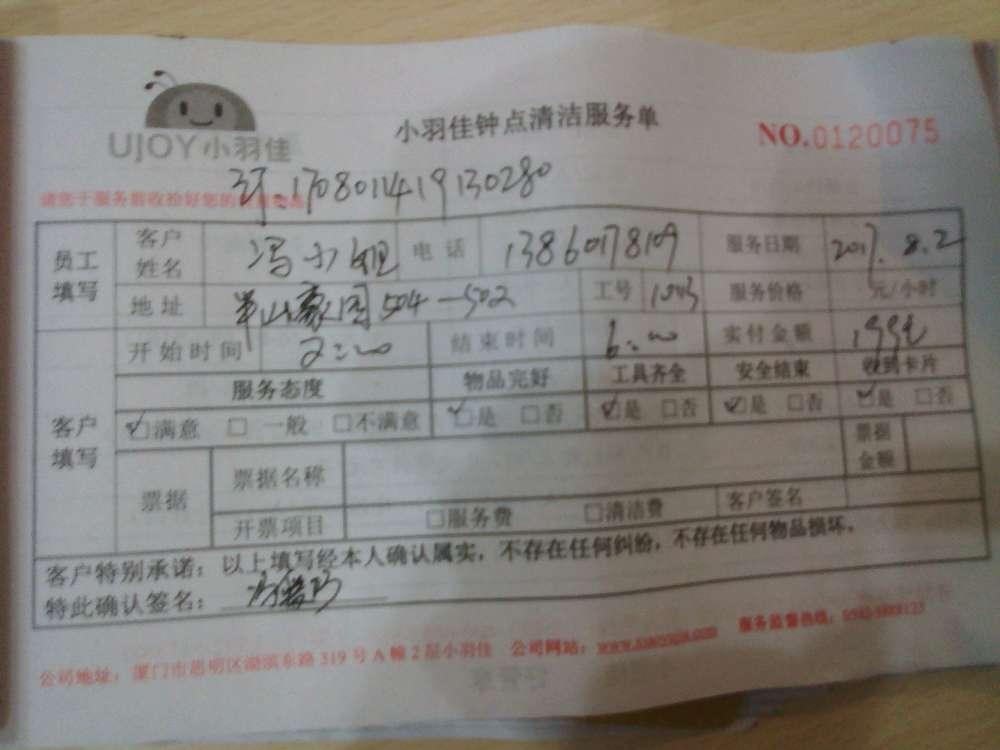 UJOY小羽佳
小羽佳钟点清洁服务单
NO.0120075
170801141913028​0
请您于服务前收拾好您的
员工填写 客户姓名 冯小姐 电话 13860178109 服务日期 2017.8.2
地址 半山豪园504-502 工号 1043 服务价格 元/小时
客户填写 开始时间 2:00 结束时间 6:00 实付金额
服务态度 物品完好 工具齐全 安全结束 收到卡片
☑满意 □一般 □不满意 ☑是 □否 ☑是 □否 ☑是 □否 ☑是 □否
票据 票据名称 票据金额
开票项目 □服务费 □清洁费 客户签名
客户特别承诺：以上填写经本人确认属实，不存在任何纠纷，不存在任何物品损坏。
特此确认签名：
公司地址：厦门市思明区湖滨东路319号A幢2层小羽佳 公司网站： 服务监督热线：